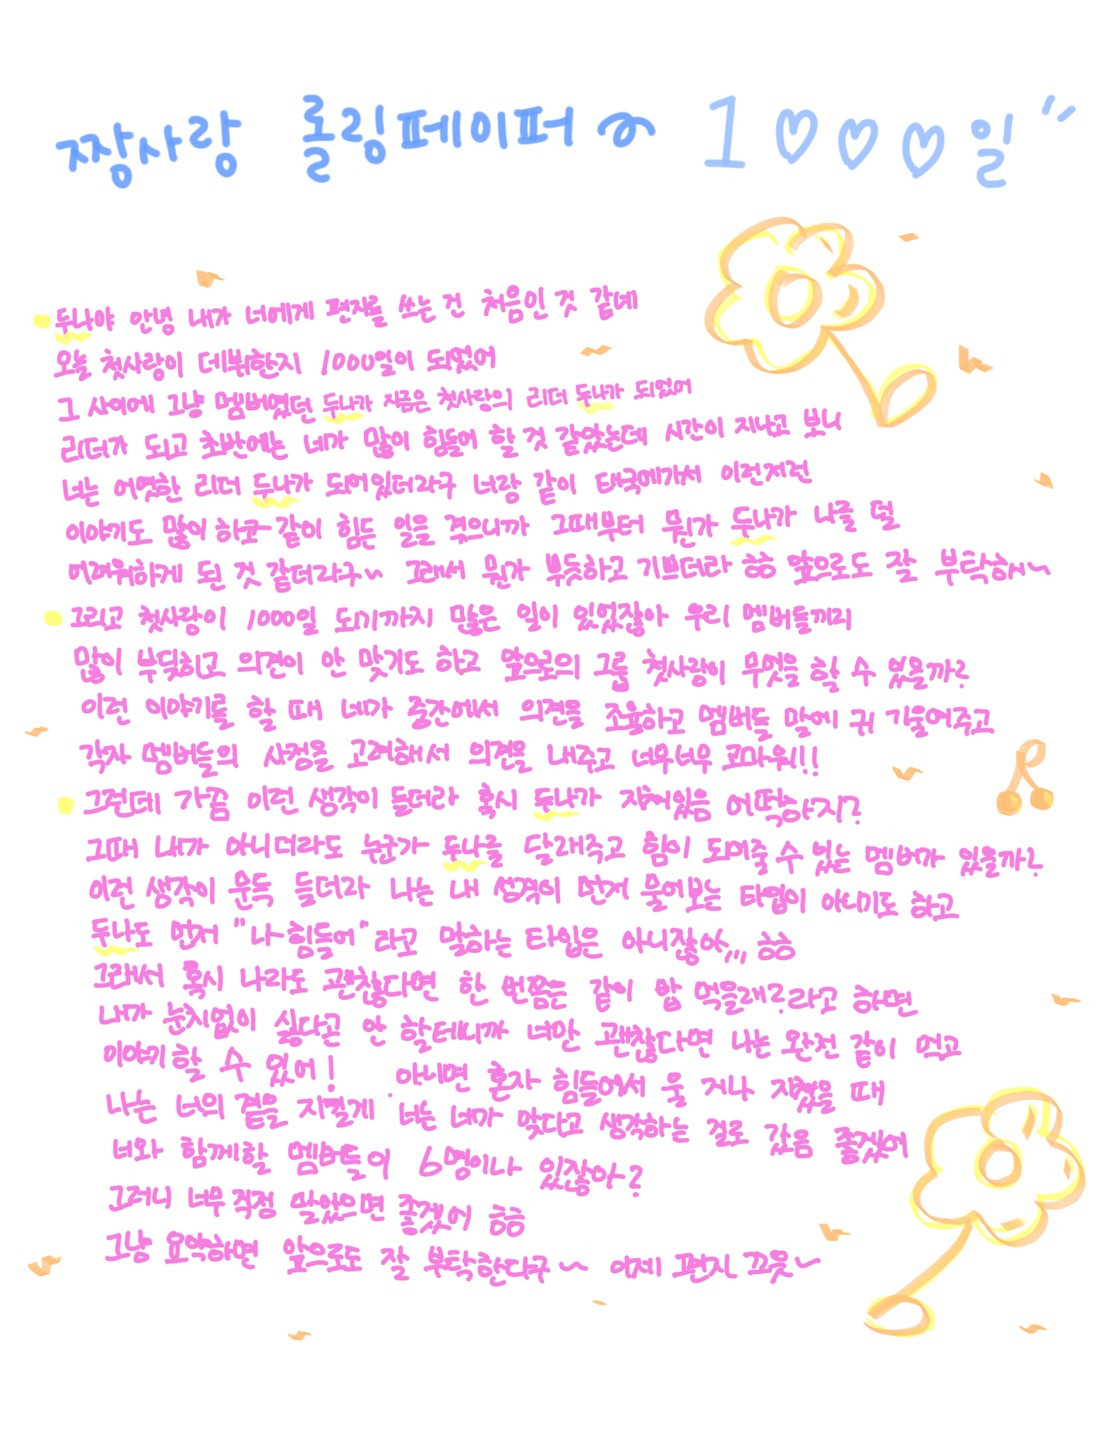 짱사랑 롤링페이퍼 1000일"
두나야 안녕 내가 너에게 편지를 쓰는 건 처음인 것 같네
오늘 첫사랑이 데뷔한지 1000일이 되었어
그 사이에 그냥 멤버였던 두나가 지금은 첫사랑의 리더 두나가 되었어
리더가 되고 초반에는 네가 많이 힘들어 할 것 같았는데 시간이 지나고 보니
너는 어엿한 리더 두나가 되어있더라구 너랑 같이 태국에가서 이런저런
이야기도 많이 하고 같이 힘든 일을 겪으니까 그때부터 뭔가 두나가 나를 덜
어려워하게 된 것 같더라구~ 그래서 뭔가 뿌듯하고 기쁘더라 ㅎㅎ 앞으로도 잘 부탁해~
그리고 첫사랑이 1000일 되기까지 많은 일이 있었잖아 우리 멤버들끼리
많이 부딪히고 의견이 안 맞기도 하고 앞으로의 그룹 첫사랑이 무엇을 할 수 있을까?
이런 이야기를 할 때 네가 중간에서 의견을 조율하고 멤버들 말에 귀 기울여주고
각자 멤버들의 사정을 고려해서 의견을 내주고 너무너무 고마워!!!
그런데 가끔 이런 생각이 들더라 혹시 두나가 지쳐있음 어떡하지?
그때 내가 아니더라도 누군가 두나를 달래주고 힘이 되어줄 수 있는 멤버가 있을까?
이런 생각이 문득 들더라 나는 내 성격이 먼저 물어보는 타입이 아니기도 하고
두나도 먼저 "나 힘들어"라고 말하는 타입은 아니잖아,,, ㅎㅎ
그래서 혹시 나라도 괜찮다면 한 번쯤은 같이 밥 먹을래?라고 하면
내가 눈치없이 싫다곤 안 할테니까 너만 괜찮다면 나는 완전 같이 먹고
이야기 할 수 있어! 아니면 혼자 힘들어서 울 거나 지쳤을 때
나는 너의 곁을 지킬게 너는 네가 맞다고 생각하는 걸로 갔음 좋겠어
너와 함께할 멤버들이 6명이나 있잖아?
그러니 너무 걱정 말았으면 좋겠어 ㅎㅎ
그냥 요약하면 앞으로도 잘 부탁한다구~ 이제 편지 끄읏~